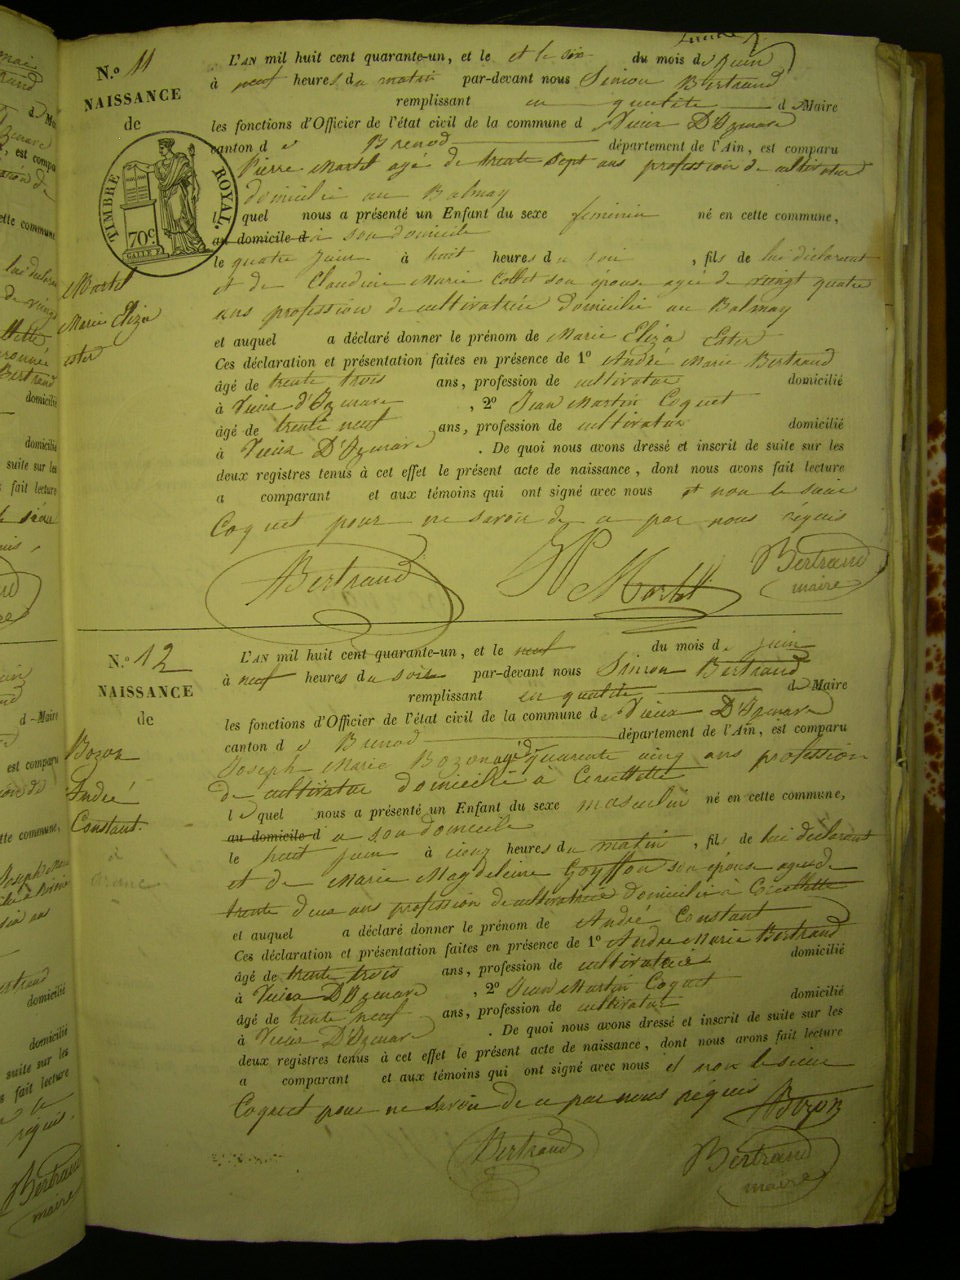 N.º 11
NAISSANCE
de
TIMBRE ROYAL.
70c
Martel
Marie Eliza
ester
L'AN mil huit cent quarante-un, et le du mois de juin
à neuf heures du matin par-devant nous Simon Bertrand
remplissant en qualité de Maire
les fonctions d'Officier de l'état civil de la commune de Vieux D'Izenave
canton de Brenod département de l'Ain, est comparu
Pierre Martel agé de trente sept ans profession de cultivateur
domicilié au Balmay
lequel nous a présenté un Enfant du sexe feminin né en cette commune,
au domicile d à son domicile
le quatre juin à huit heures du soir, fils de lui déclarant
et de Claudine Marie Collet son épouse agée de vingt quatre
ans profession de cultivatrice domicilié au Balmay
et auquel a déclaré donner le prénom de Marie Eliza Ester
Ces déclaration et présentation faites en présence de 1º André Marie Bertrand
âgé de trente trois ans, profession de cultivateur domicilié
à Vieux d'Izenave, 2º Jean Martin Coquet
âgé de trente neuf ans, profession de cultivateur domicilié
à Vieux D'Izenave. De quoi nous avons dressé et inscrit de suite sur les
deux registres tenus à cet effet le présent acte de naissance, dont nous avons fait lecture
a comparant et aux témoins qui ont signé avec nous et non le sieur
Coquet pour ne savoir de ce par nous réquis
Bertrand Martel Bertrand
maire
N.º 12
NAISSANCE
de
Bozon
André
Constant.
L'AN mil huit cent quarante-un, et le neuf du mois de juin
à neuf heures du soir par-devant nous Simon Bertrand
remplissant en qualité de Maire
les fonctions d'Officier de l'état civil de la commune de Vieux D'Izenave
canton de Brenod département de l'Ain, est comparu
Joseph Marie Bozon agé de quarante cinq ans profession
de cultivateur domicilié à
lequel nous a présenté un Enfant du sexe masculin né en cette commune,
au domicile d a son domicile
le huit juin à cinq heures du matin, fils de lui déclarant
et de Marie Magdeleine Goyffon son épouse agée de
trente deux ans profession de cultivatrice domicilié à
et auquel a déclaré donner le prénom de André Constant
Ces déclaration et présentation faites en présence de 1º André Marie Bertrand
âgé de trente trois ans, profession de cultivateur domicilié
à Vieux D'Izenave, 2º Jean Martin Coquet
âgé de trente neuf ans, profession de cultivateur domicilié
à Vieux D'Izenave. De quoi nous avons dressé et inscrit de suite sur les
deux registres tenus à cet effet le présent acte de naissance, dont nous avons fait lecture
a comparant et aux témoins qui ont signé avec nous et non le sieur
Coquet pour ne savoir de ce par nous réquis Bozon
Bertrand Bertrand
maire